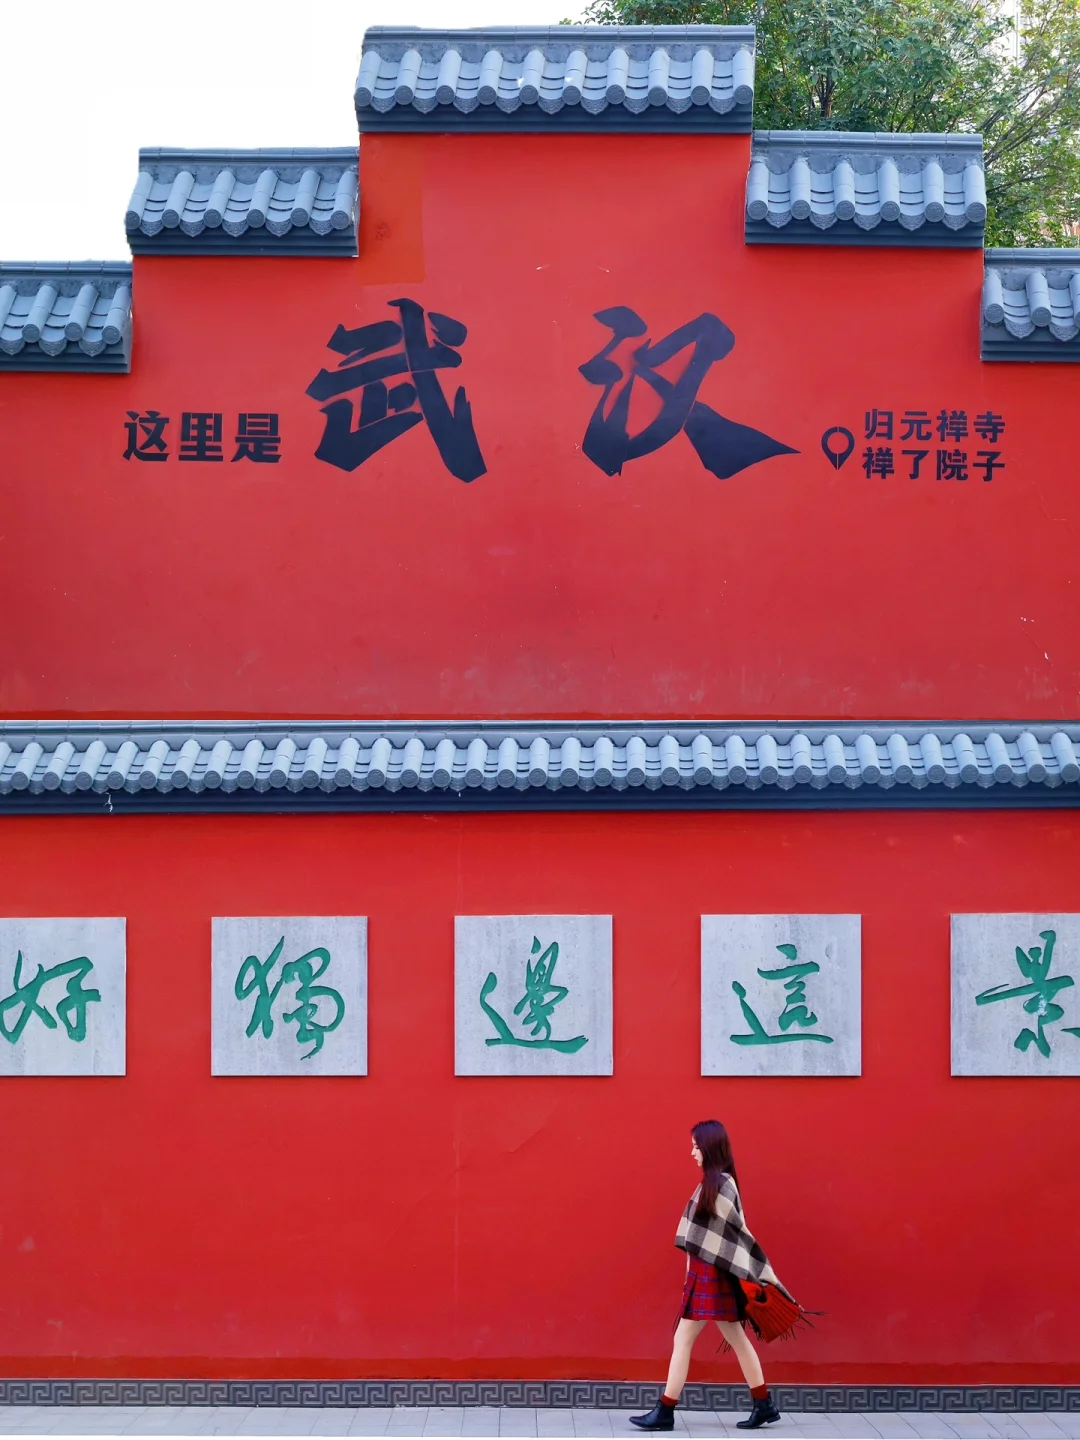 这里是
武汉
归元禅寺
禅了院子
好獨邊這景